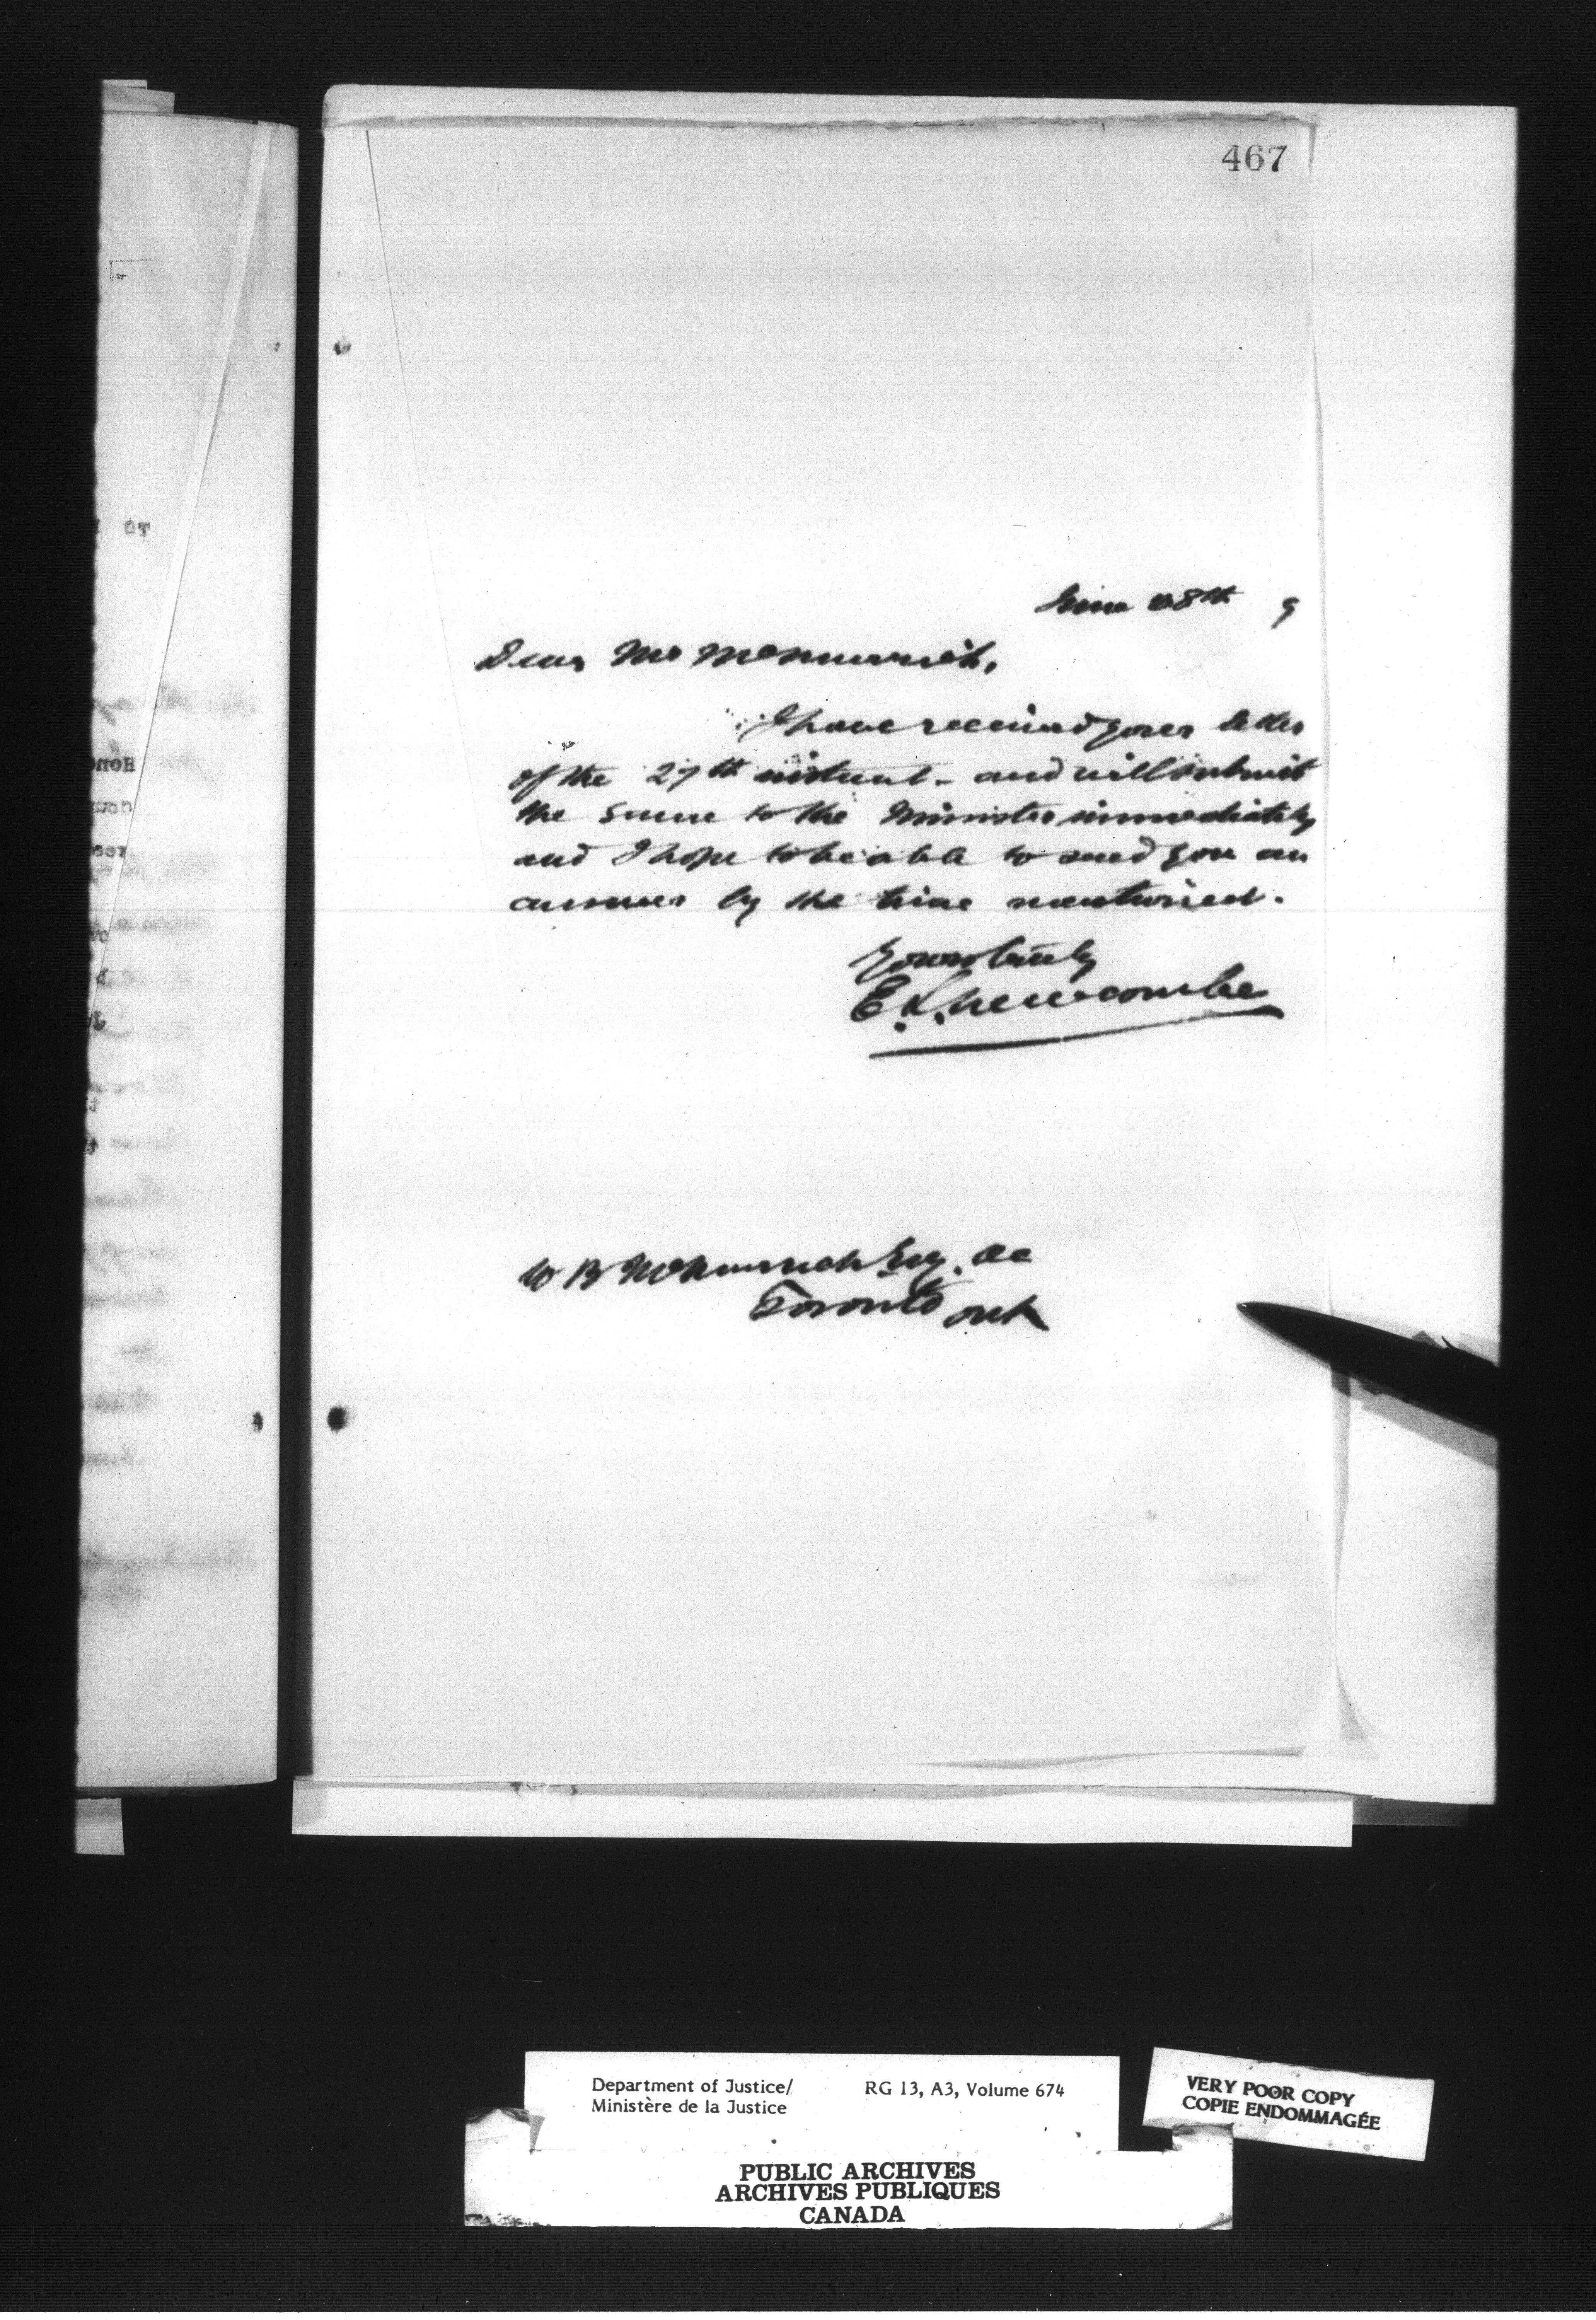 467
June 28th 9
Dear Mr McMurrich,
I have received your letter
of the 27th instant - and will submit
the same to the Minister immediately
and I hope to be able to send you an
answer by the time mentioned.
Yours truly
E. L. Newcombe
W B McMurrich Esq. QC
Toronto Ont
Department of Justice/ RG 13, A3, Volume 674
Ministère de la Justice
VERY POOR COPY
COPIE ENDOMMAGÉE
PUBLIC ARCHIVES
ARCHIVES PUBLIQUES
CANADA